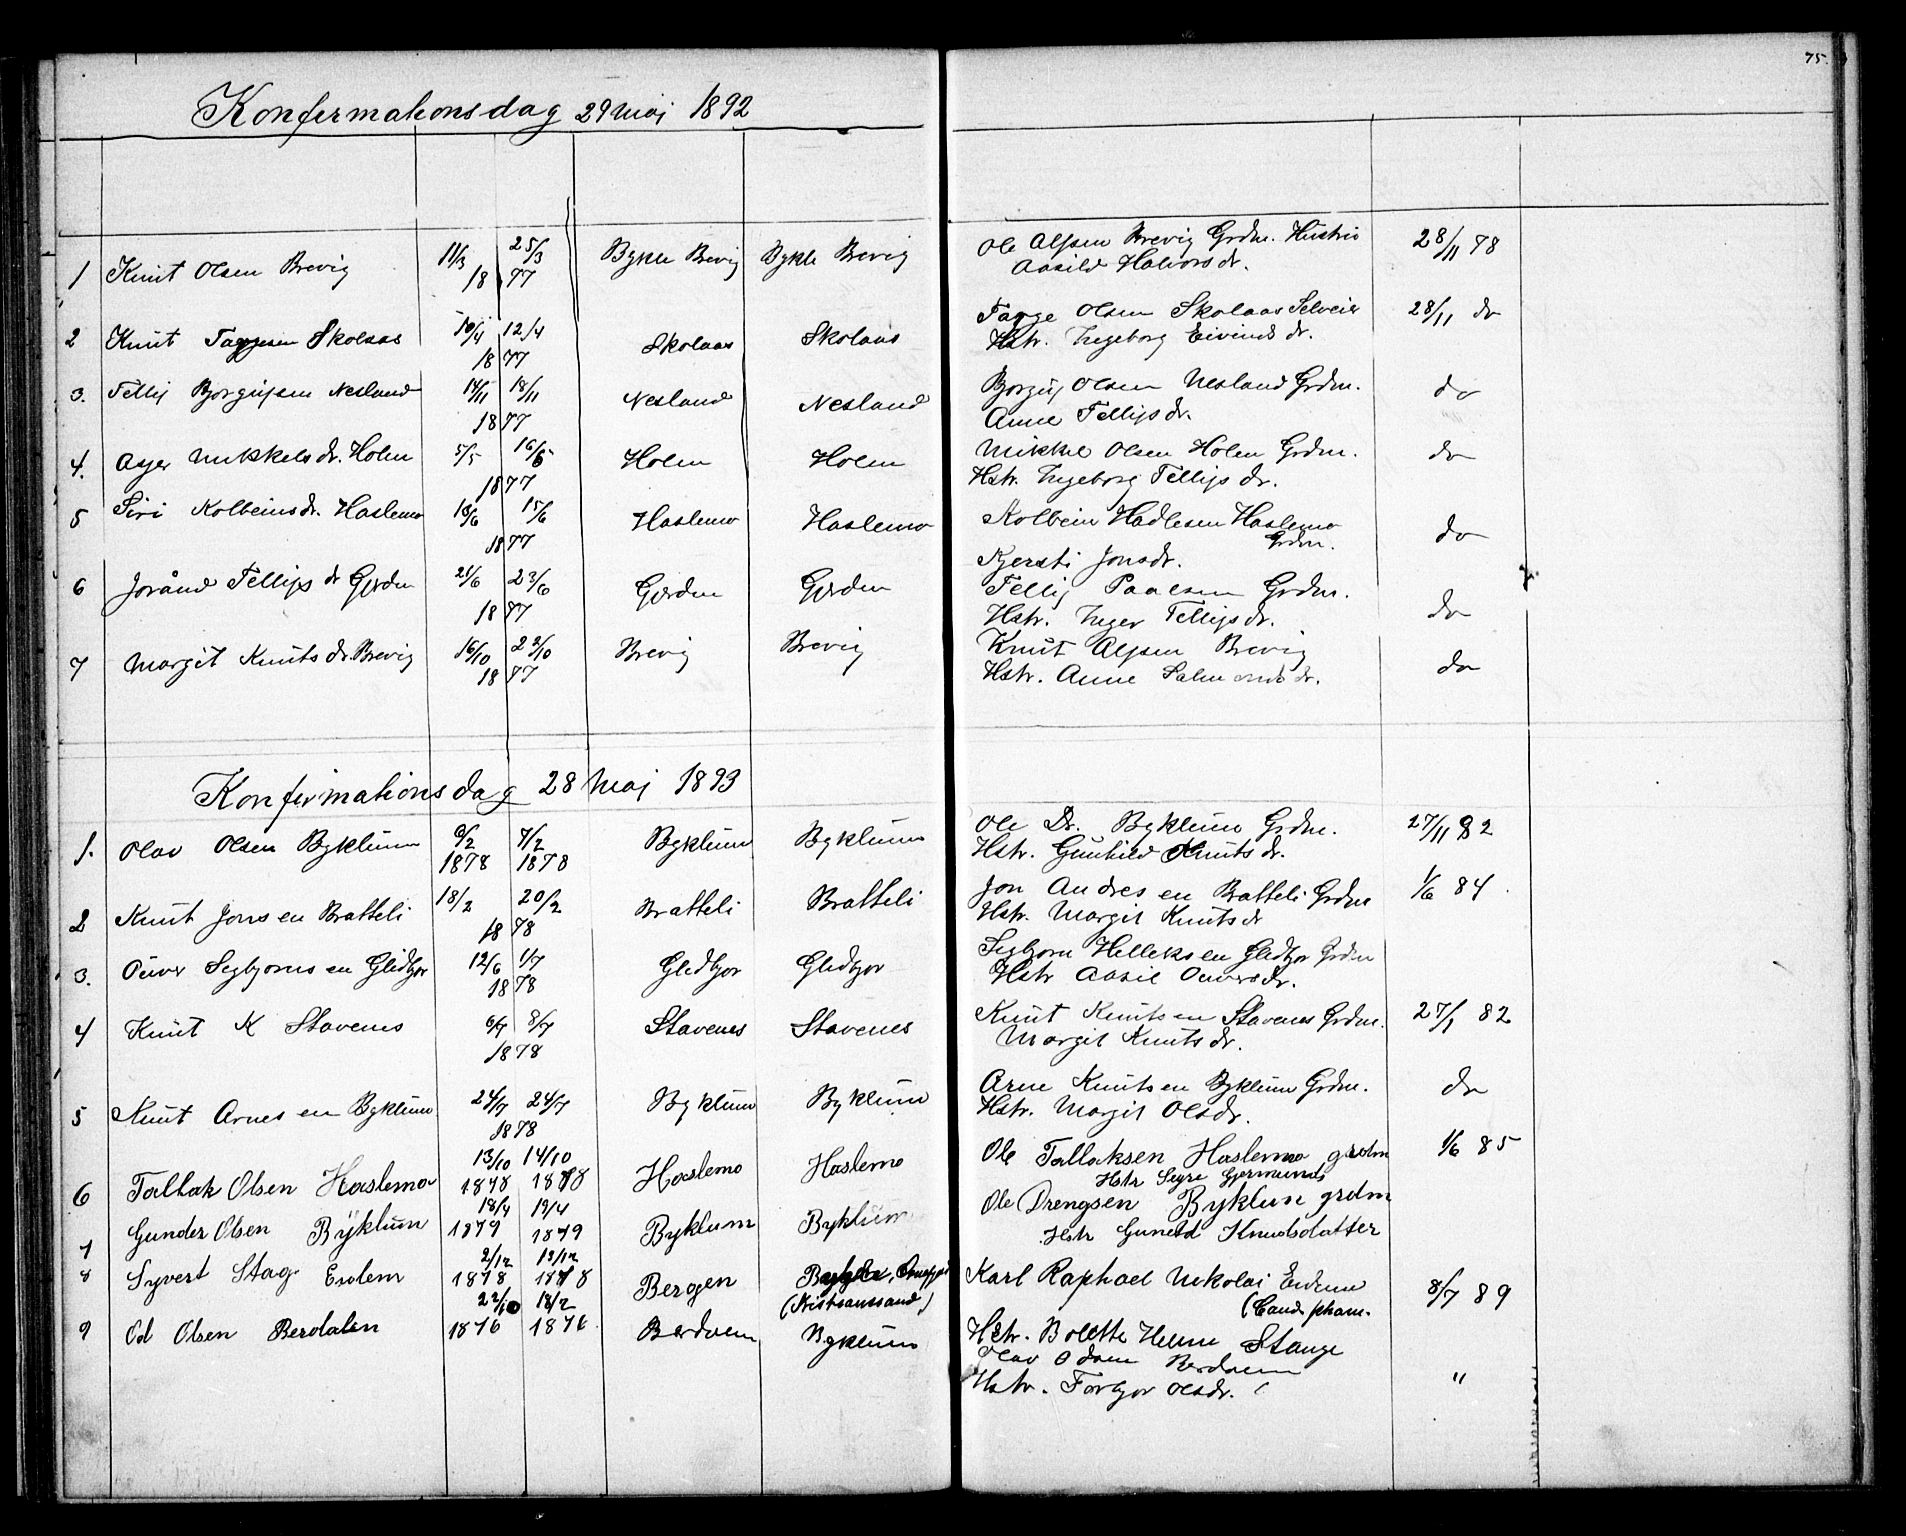 75.
Konfermationsdag 29 Maj 1892
1 Knut Olsen Brevig 11/3 25/3 Bykle Brevig Bykle Brevig Ole Alfsen Brevig Grdm. Hustru 28/11 78
18 77 Aasild Halvorsdr.
2 Knut Taggesen Skolaas 10/4 12/4 Skolaas Skolaas Targe Olsen Skolaas Selveier 28/11 do
18 77 Hstr. Ingeborg Eivindsdr.
3. Tellif Bjorgufsen Nesland 14/11 18/11 Nesland Nesland Bjorguf Olsen Nesland Grdm. do
18 77 Anne Tellifsdr.
4. Aaser Mikkelsdr. Holen 5/5 16/5 Holen Holen Mikkel Olsen Holen Grdm. do
18 77 Hstr. Ingeborg Tellifsdr.
5 Siri Kolbeinsdr. Haslemo 13/6 15/6 Haslemo Haslemo Kolbein Hadlesen Haslemo do
Grdm.
18 77 Kjersti Jonsdr.
6 Joränd Tellifsdr Gjerden 21/6 23/6 Gjerden Gjerden Tellif Paalsen Grdm. do
18 77 Hstr. Inger Tellifsdr.
7 Margit Knutsdr. Brevig 16/10 22/10 Brevig Brevig Knut Alfsen Brevig do
18 77 Hstr. Anne Salmondsdr.
Konfirmationsdag 28 Maj 1893
1. Olav Olsen Byklum 6/2 7/2 Byklum Byklum Ole Dr. Byklum Grdm. 27/11 82
1878 1878 Hstr. Gunhild Knutsdr.
2 Knut Jonsen Bratteli 18/2 20/2 Bratteli Bratteli Jon Andresen Bratteli Grdm 1/6 84.
18 78 Hstr. Margit Knutsdr
3. Ouver Segbjornsen Glidbjor 12/6 1/7 Glidbjor Glidbjor Segbjorn Helleksen Glidbjor Grdm
18 78 Hstr Aasil Ouversdr.
4 Knut K Stavenes 6/7 8/7 Stavenes Stavenes Knut Knutsen Stavenes Grdm. 27/1 82
1878 Margit Knutsdr.
5 Knut Arnesen Byklum 24/7 24/7 Byklum Byklum Arne Knutsen Byklum Grdm. do
1878 Hstr. Margit Olsdr.
6 Tallak Olsen Haslemo 13/10 14/10 Haslemo Haslemo Ole Tallaksen Haslemo grdm 1/6 85
1878 1878 Hstr Segre Gjermunds
7 Gunder Olsen Byklum 18/4 19/4 Byklum Byklum Ole Drengsen Byklum grdm
1879 1879 Hstr Guneld Knudsdatter
8 Syvert Stag 2/12 13/12 Bergen Karl Raphael Nikolai 8/7 89
1878 1878 (Kristianssand) (Cand pharm.
Hstr. Bolette Helene Stange
9 Od Olsen Berdalen 22/10 18/2 Berdalen Byklum Olav Odsen Berdalen "
1876 1876 Hstr. Torbjor Olsdr.